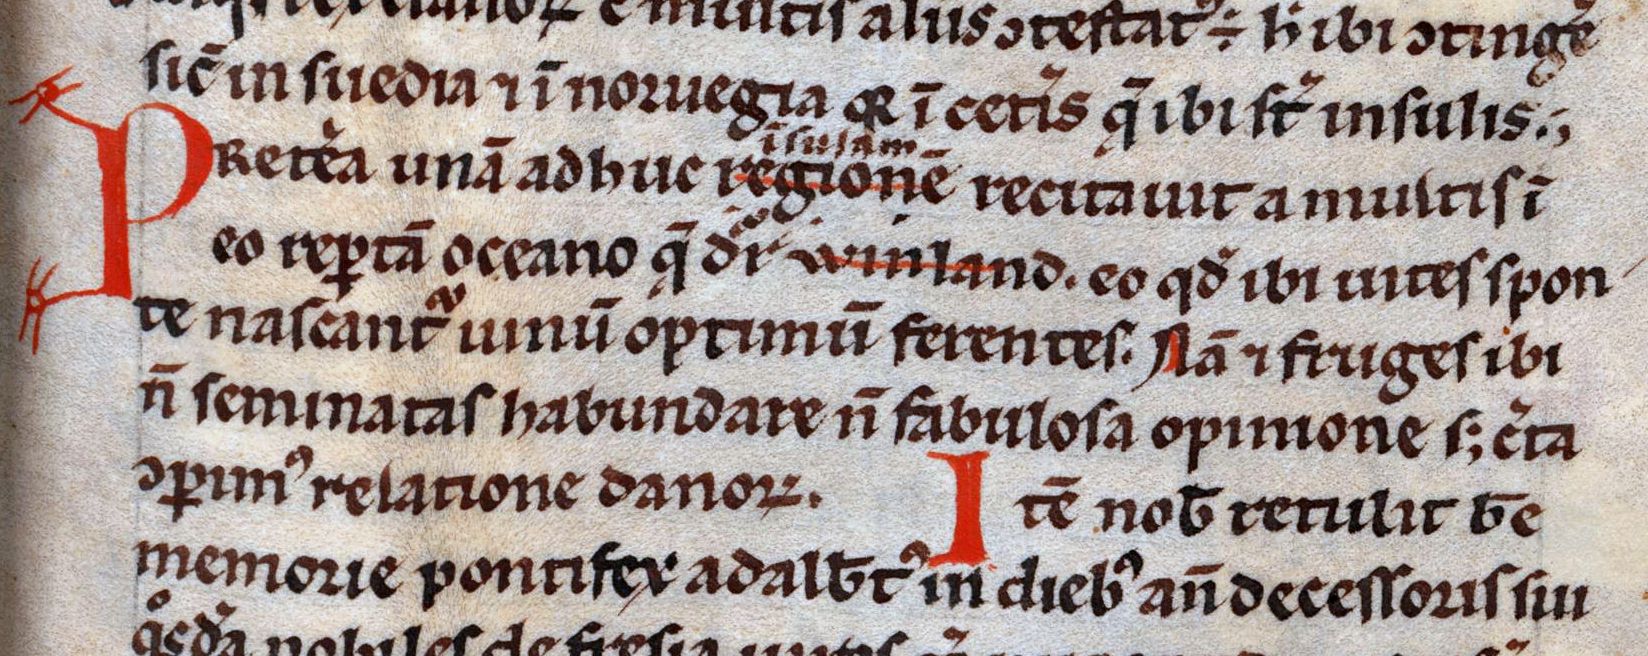 multis aliis ↄtestat᷒ ÷ h̅ ibi ↄtinge̅
sic̅ in suedia ⁊ i̅ noruegia & i̅ ceti̅s q̅ ibi st̅ insulis.
Prete̅a una̅ adhuc regione̅ i̅sulam recitauit a multis i̅
eo rep̱ta̅ oceano q̅ dr̅ winland. eo qd̅ ibi uites spon
te nascant᷒ uinu̅ optimu̅ ferentes. Na̅ ⁊ fruges ibi
n̅ seminatas habundare n̅ fabulosa opinione s; c̅ta
ↄp̱im᷒ relatione danoꝝ. Ite̅ nob̅ retulit b̅e
memorie pontifex adalb̅t᷒ in dieb᷒ an̅decessoris sui
nobiles de fresia